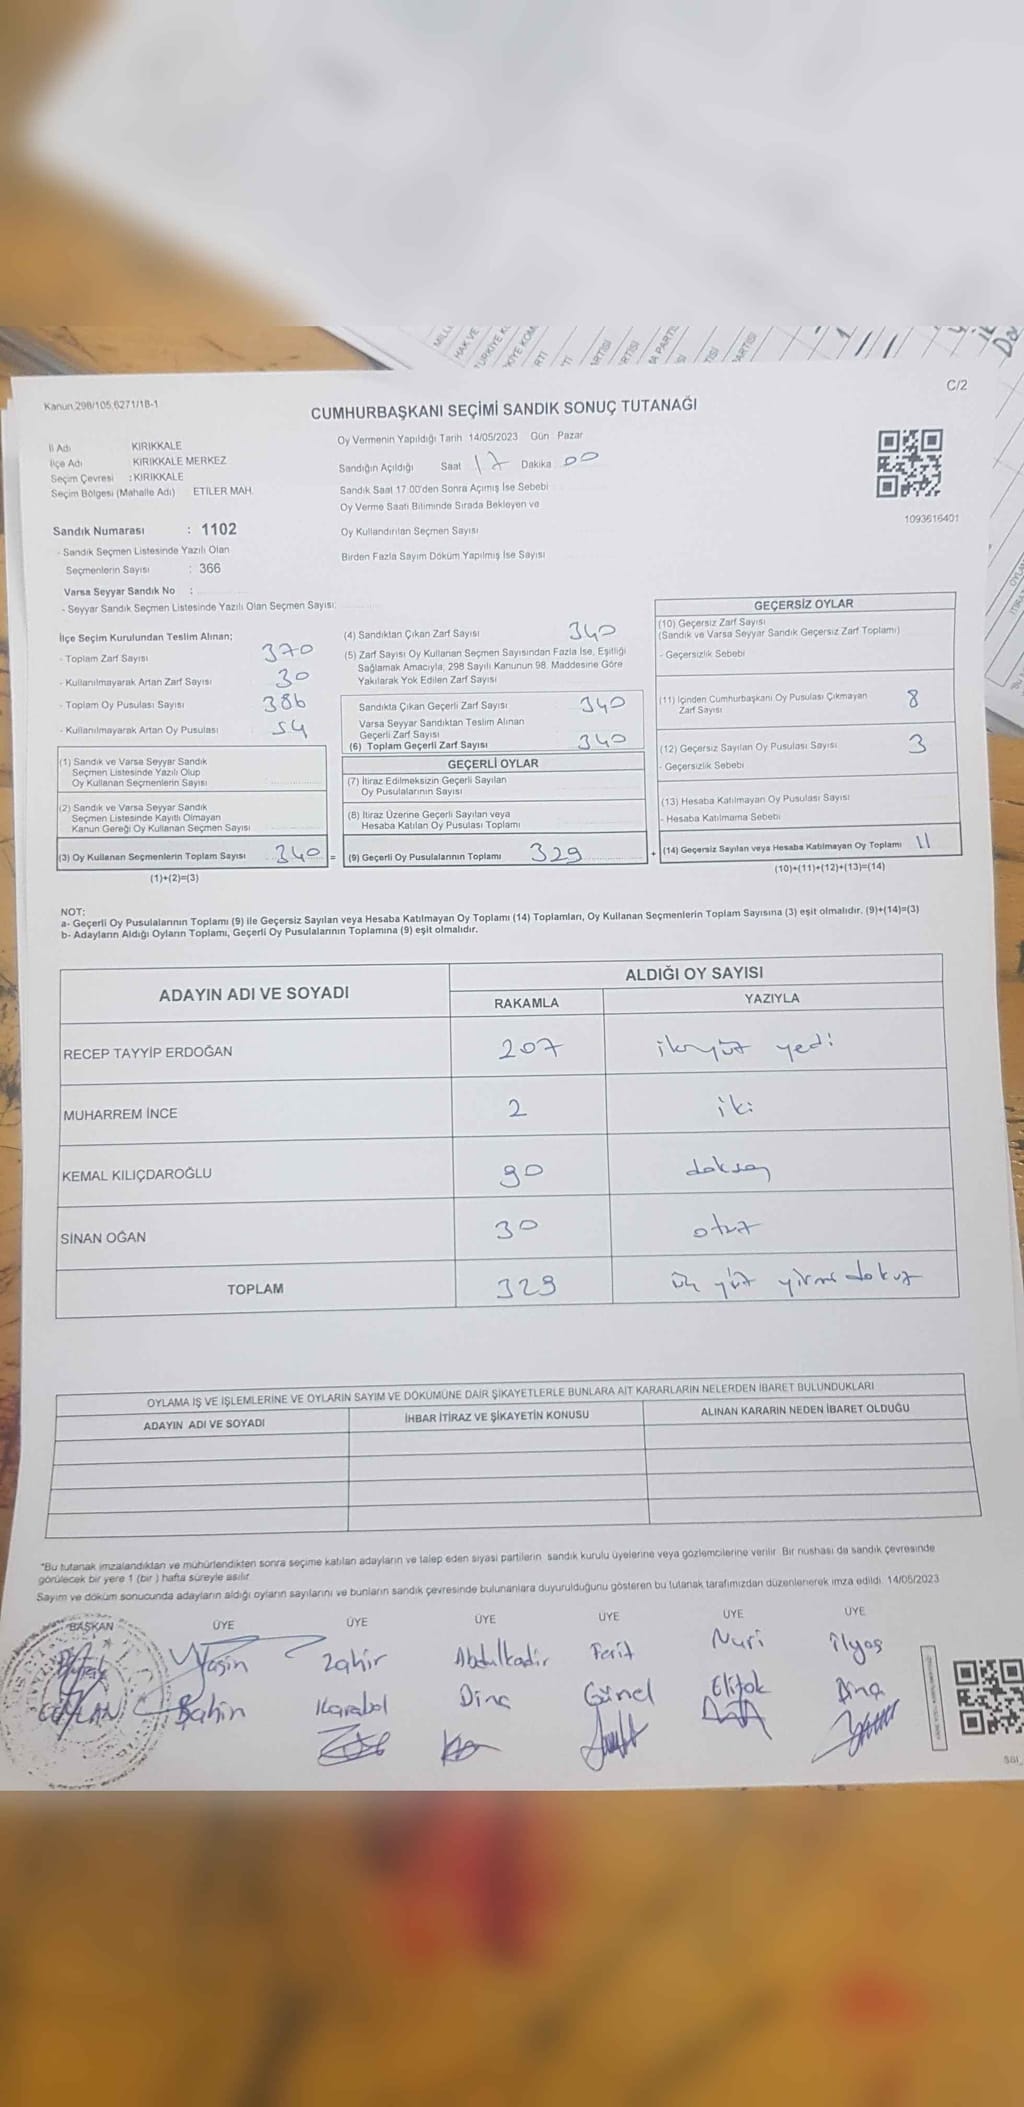 Kanun.298/105,6271/18-1
C/2
CUMHURBAŞKANI SEÇİMİ SANDIK SONUÇ TUTANAĞI
İl Adı KIRIKKALE
İlçe Adı KIRIKKALE MERKEZ
Seçim Çevresi : KIRIKKALE
Seçim Bölgesi (Mahalle Adı) ETİLER MAH.
Sandık Numarası : 1102
- Sandık Seçmen Listesinde Yazılı Olan
Seçmenlerin Sayısı : 366
Varsa Seyyar Sandık No :
- Seyyar Sandık Seçmen Listesinde Yazılı Olan Seçmen Sayısı:
Oy Vermenin Yapıldığı Tarih 14/05/2023 Gün Pazar
Sandığın Açıldığı Saat 17 Dakika 00
Sandık Saat 17.00'den Sonra Açımış İse Sebebi
Oy Verme Saati Bitiminde Sırada Bekleyen ve
Oy Kullandırılan Seçmen Sayısı
Birden Fazla Sayım Döküm Yapılmış İse Sayısı
1093616401
İlçe Seçim Kurulundan Teslim Alınan;
- Toplam Zarf Sayısı 370
- Kullanılmayarak Artan Zarf Sayısı 30
- Toplam Oy Pusulası Sayısı 386
- Kullanılmayarak Artan Oy Pusulası 54
(1) Sandık ve Varsa Seyyar Sandık
Seçmen Listesinde Yazılı Olup
Oy Kullanan Seçmenlerin Sayısı
(2) Sandık ve Varsa Seyyar Sandık
Seçmen Listesinde Kayıtlı Olmayan
Kanun Gereği Oy Kullanan Seçmen Sayısı
(3) Oy Kullanan Seçmenlerin Toplam Sayısı 340 =
(1)+(2)=(3)
(4) Sandıktan Çıkan Zarf Sayısı 340
(5) Zarf Sayısı Oy Kullanan Seçmen Sayısından Fazla İse, Eşitliği
Sağlamak Amacıyla, 298 Sayılı Kanunun 98. Maddesine Göre
Yakılarak Yok Edilen Zarf Sayısı
Sandıkta Çıkan Geçerli Zarf Sayısı 340
Varsa Seyyar Sandıktan Teslim Alınan
Geçerli Zarf Sayısı
(6) Toplam Geçerli Zarf Sayısı 340
GEÇERLİ OYLAR
(7) İtiraz Edilmeksizin Geçerli Sayılan
Oy Pusulalarının Sayısı
(8) İtiraz Üzerine Geçerli Sayılan veya
Hesaba Katılan Oy Pusulası Toplamı
(9) Geçerli Oy Pusulalarının Toplamı 329 +
GEÇERSİZ OYLAR
(10) Geçersiz Zarf Sayısı
(Sandık ve Varsa Seyyar Sandık Geçersiz Zarf Toplamı)
- Geçersizlik Sebebi
(11) İçinden Cumhurbaşkanı Oy Pusulası Çıkmayan
Zarf Sayısı 8
(12) Geçersiz Sayılan Oy Pusulası Sayısı 3
- Geçersizlik Sebebi
(13) Hesaba Katılmayan Oy Pusulası Sayısı
- Hesaba Katılmama Sebebi
(14) Geçersiz Sayılan veya Hesaba Katılmayan Oy Toplamı 11
(10)+(11)+(12)+(13)=(14)
NOT:
a- Geçerli Oy Pusulalarının Toplamı (9) ile Geçersiz Sayılan veya Hesaba Katılmayan Oy Toplamı (14) Toplamları, Oy Kullanan Seçmenlerin Toplam Sayısına (3) eşit olmalıdır. (9)+(14)=(3)
b- Adayların Aldığı Oyların Toplamı, Geçerli Oy Pusulalarının Toplamına (9) eşit olmalıdır.
ADAYIN ADI VE SOYADI
ALDIĞI OY SAYISI
RAKAMLA YAZIYLA
RECEP TAYYİP ERDOĞAN 207 ikiyüz yedi
MUHARREM İNCE 2 iki
KEMAL KILIÇDAROĞLU 90 doksan
SİNAN OĞAN 30 otuz
TOPLAM 329 üç yüz yirmi dokuz
OYLAMA İŞ VE İŞLEMLERİNE VE OYLARIN SAYIM VE DÖKÜMÜNE DAİR ŞİKAYETLERLE BUNLARA AİT KARARLARIN NELERDEN İBARET BULUNDUKLARI
ADAYIN ADI VE SOYADI İHBAR İTİRAZ VE ŞİKAYETİN KONUSU ALINAN KARARIN NEDEN İBARET OLDUĞU
*Bu tutanak imzalandıktan ve mühürlendikten sonra seçime katılan adayların ve talep eden siyasi partilerin sandık kurulu üyelerine veya gözlemcilerine verilir. Bir nüshası da sandık çevresinde
görülecek bir yere 1 (bir) hafta süreyle asılır.
Sayım ve döküm sonucunda adayların aldığı oyların sayılarını ve bunların sandık çevresinde bulunanlara duyurulduğunu gösteren bu tutanak tarafımızdan düzenlenerek imza edildi. 14/05/2023
BAŞKAN ÜYE ÜYE ÜYE ÜYE ÜYE ÜYE
Yasin Zahir Abdulkadir Ferit Nuri İlyas
CEYLAN Şahin Karabol Dinç Günel Elitok Dinç